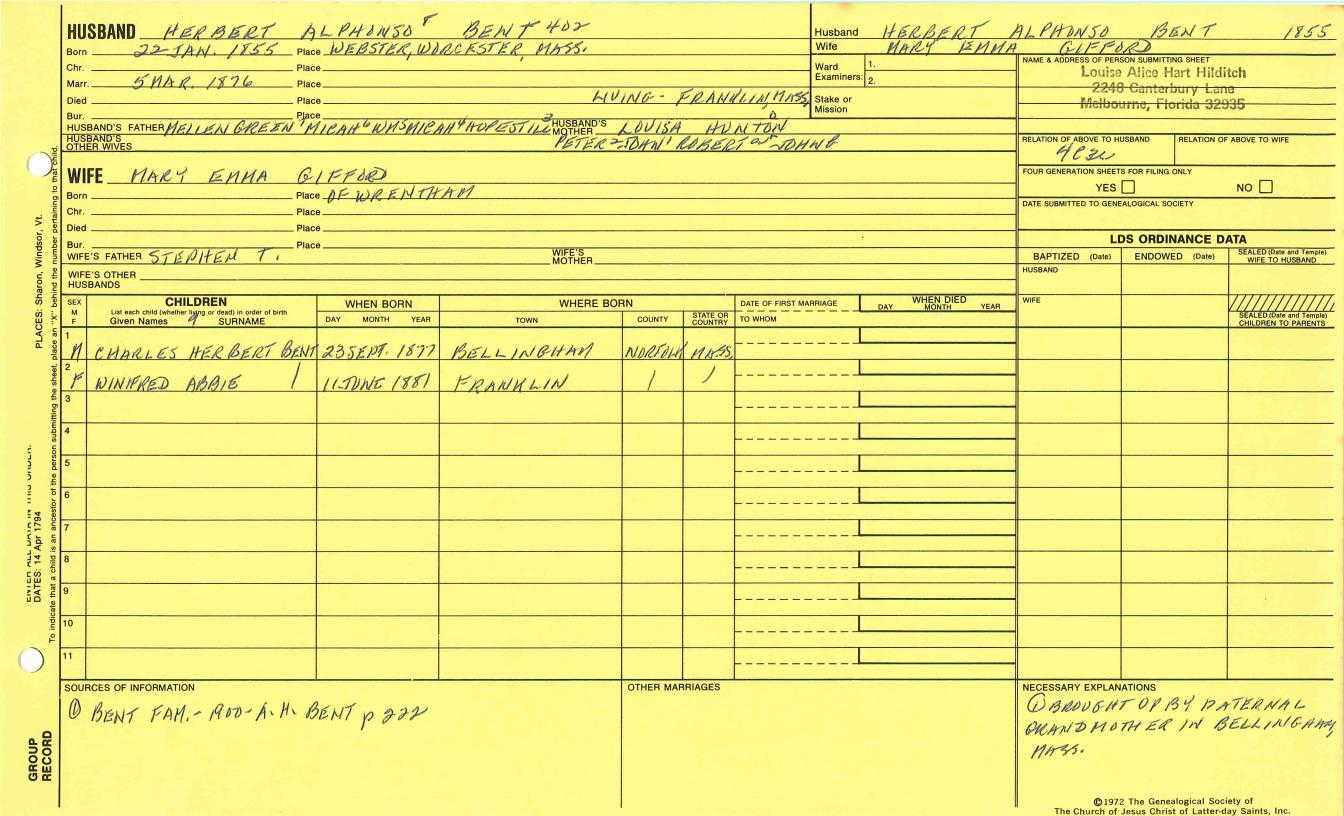 HUSBAND HERBERT ALPHONSO 8 BENT 402
Born 22 JAN. 1855 Place WEBSTER, WORCESTER, MASS.
Chr. Place
Marr. 5 MAR. 1876 Place
Died Place LIVING - FRANKLIN, MASS,
Bur. Place
HUSBAND'S FATHER MELLEN GREEN 7 MICAH 6 WM 5 MICAH 4 HOPESTILL 3 HUSBAND'S MOTHER LOUISA HUNTON
HUSBAND'S OTHER WIVES PETER 2 JOHN 1 ROBERT JOHN
Husband HERBERT ALPHONSO BENT 1855
Wife MARY EMMA GIFFORD
Ward Examiners: 1.
2.
Stake or Mission
NAME & ADDRESS OF PERSON SUBMITTING SHEET
Louise Alice Hart Hilditch
2248 Canterbury Lane
Melbourne, Florida 32935
RELATION OF ABOVE TO HUSBAND RELATION OF ABOVE TO WIFE
4C3R
FOUR GENERATION SHEETS FOR FILING ONLY
YES NO
DATE SUBMITTED TO GENEALOGICAL SOCIETY
WIFE MARY EMMA GIFFORD
Born Place OF WRENTHAM
Chr. Place
Died Place
Bur. Place
WIFE'S FATHER STEPHEN T. WIFE'S MOTHER
WIFE'S OTHER HUSBANDS
LDS ORDINANCE DATA
BAPTIZED (Date) ENDOWED (Date) SEALED (Date and Temple) WIFE TO HUSBAND
HUSBAND
WIFE
SEALED (Date and Temple) CHILDREN TO PARENTS
SEX M F
CHILDREN
List each child (whether living or dead) in order of birth
Given Names 9 SURNAME
WHEN BORN
DAY MONTH YEAR
WHERE BORN
TOWN COUNTY STATE OR COUNTRY
DATE OF FIRST MARRIAGE
TO WHOM
WHEN DIED
DAY MONTH YEAR
1 M CHARLES HERBERT BENT 23 SEPT. 1877 BELLINGHAM NORFOLK MASS.
2 F WINIFRED ABBIE 11 JUNE 1881 FRANKLIN
3
4
5
6
7
8
9
10
11
SOURCES OF INFORMATION
① BENT FAM. - 1900 - A.H. BENT p 222
OTHER MARRIAGES
NECESSARY EXPLANATIONS
① BROUGHT UP BY PATERNAL
GRANDMOTHER IN BELLINGHAM,
MASS.
©1972 The Genealogical Society of
The Church of Jesus Christ of Latter-day Saints, Inc.
GROUP RECORD
ENTER ALL DATA IN THIS ORDER:
DATES: 14 Apr 1794
PLACES: Sharon, Windsor, Vt.
To indicate that a child is an ancestor of the person submitting the sheet, place an "X" behind the number pertaining to that child.